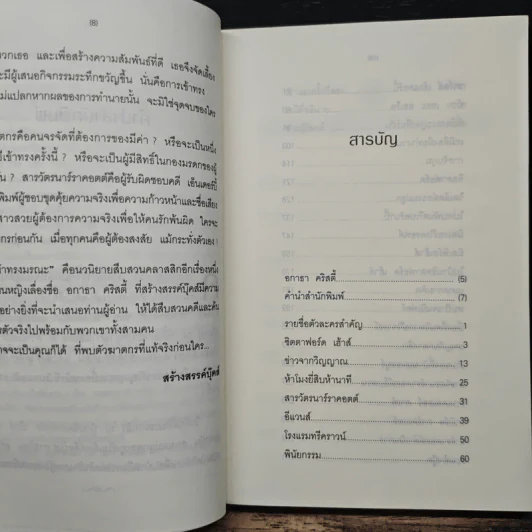 (8)
วกเธอ และเพื่อสร้างความสัมพันธ์ที่ดี เธอจึงจัดเลี้ยง
ะมีผู้เสนอกิจกรรมระทึกขวัญขึ้น นั่นคือการเข้าทรง
ม่แปลกหากผลของการทำนายนั้น จะมิใช่จุดจบของใคร
ตกรคือคนจรจัดที่ต้องการของมีค่า ? หรือจะเป็นหนึ่ง
ข้าทรงครั้งนี้ ? หรือจะเป็นผู้มีสิทธิ์ในกองมรดกของผู้
น ? สารวัตรนาร์ราคอตต์คือผู้รับผิดชอบคดี เอ็นเดอร์บี้
พิมพ์ผู้ชอบขุดคุ้ยความจริงเพื่อความก้าวหน้าและชื่อเสียง
สาวสวยผู้ต้องการความจริงเพื่อให้คนรักพ้นผิด ใครจะ
กรก่อนกัน เมื่อทุกคนคือผู้ต้องสงสัย แม้กระทั่งตัวเอง !
ข้าทรงมรณะ" คือนวนิยายสืบสวนคลาสสิกอีกเรื่องหนึ่ง
นหญิงเลื่องชื่อ อกาธา คริสตี้ ที่สร้างสรรค์บุ๊คส์มีความ
อย่างยิ่งที่จะนำเสนอท่านผู้อ่าน ให้ได้สืบสวนคดีและค้น
ตัวจริงไปพร้อมกับพวกเขาทั้งสามคน
าจจะเป็นคุณก็ได้ ที่พบตัวฆาตกรที่แท้จริงก่อนใคร...
สร้างสรรค์บุ๊คส์
สารบัญ
อกาธา คริสตี้ (5)
คำนำสำนักพิมพ์ (7)
รายชื่อตัวละครสำคัญ 1
ซิตตาฟอร์ด เฮ้าส์ 3
ข่าวจากวิญญาณ 13
ห้าโมงยี่สิบห้านาที 25
สารวัตรนาร์ราคอตต์ 31
อีแวนส์ 39
โรงแรมทรีคราวน์ 50
พินัยกรรม 60